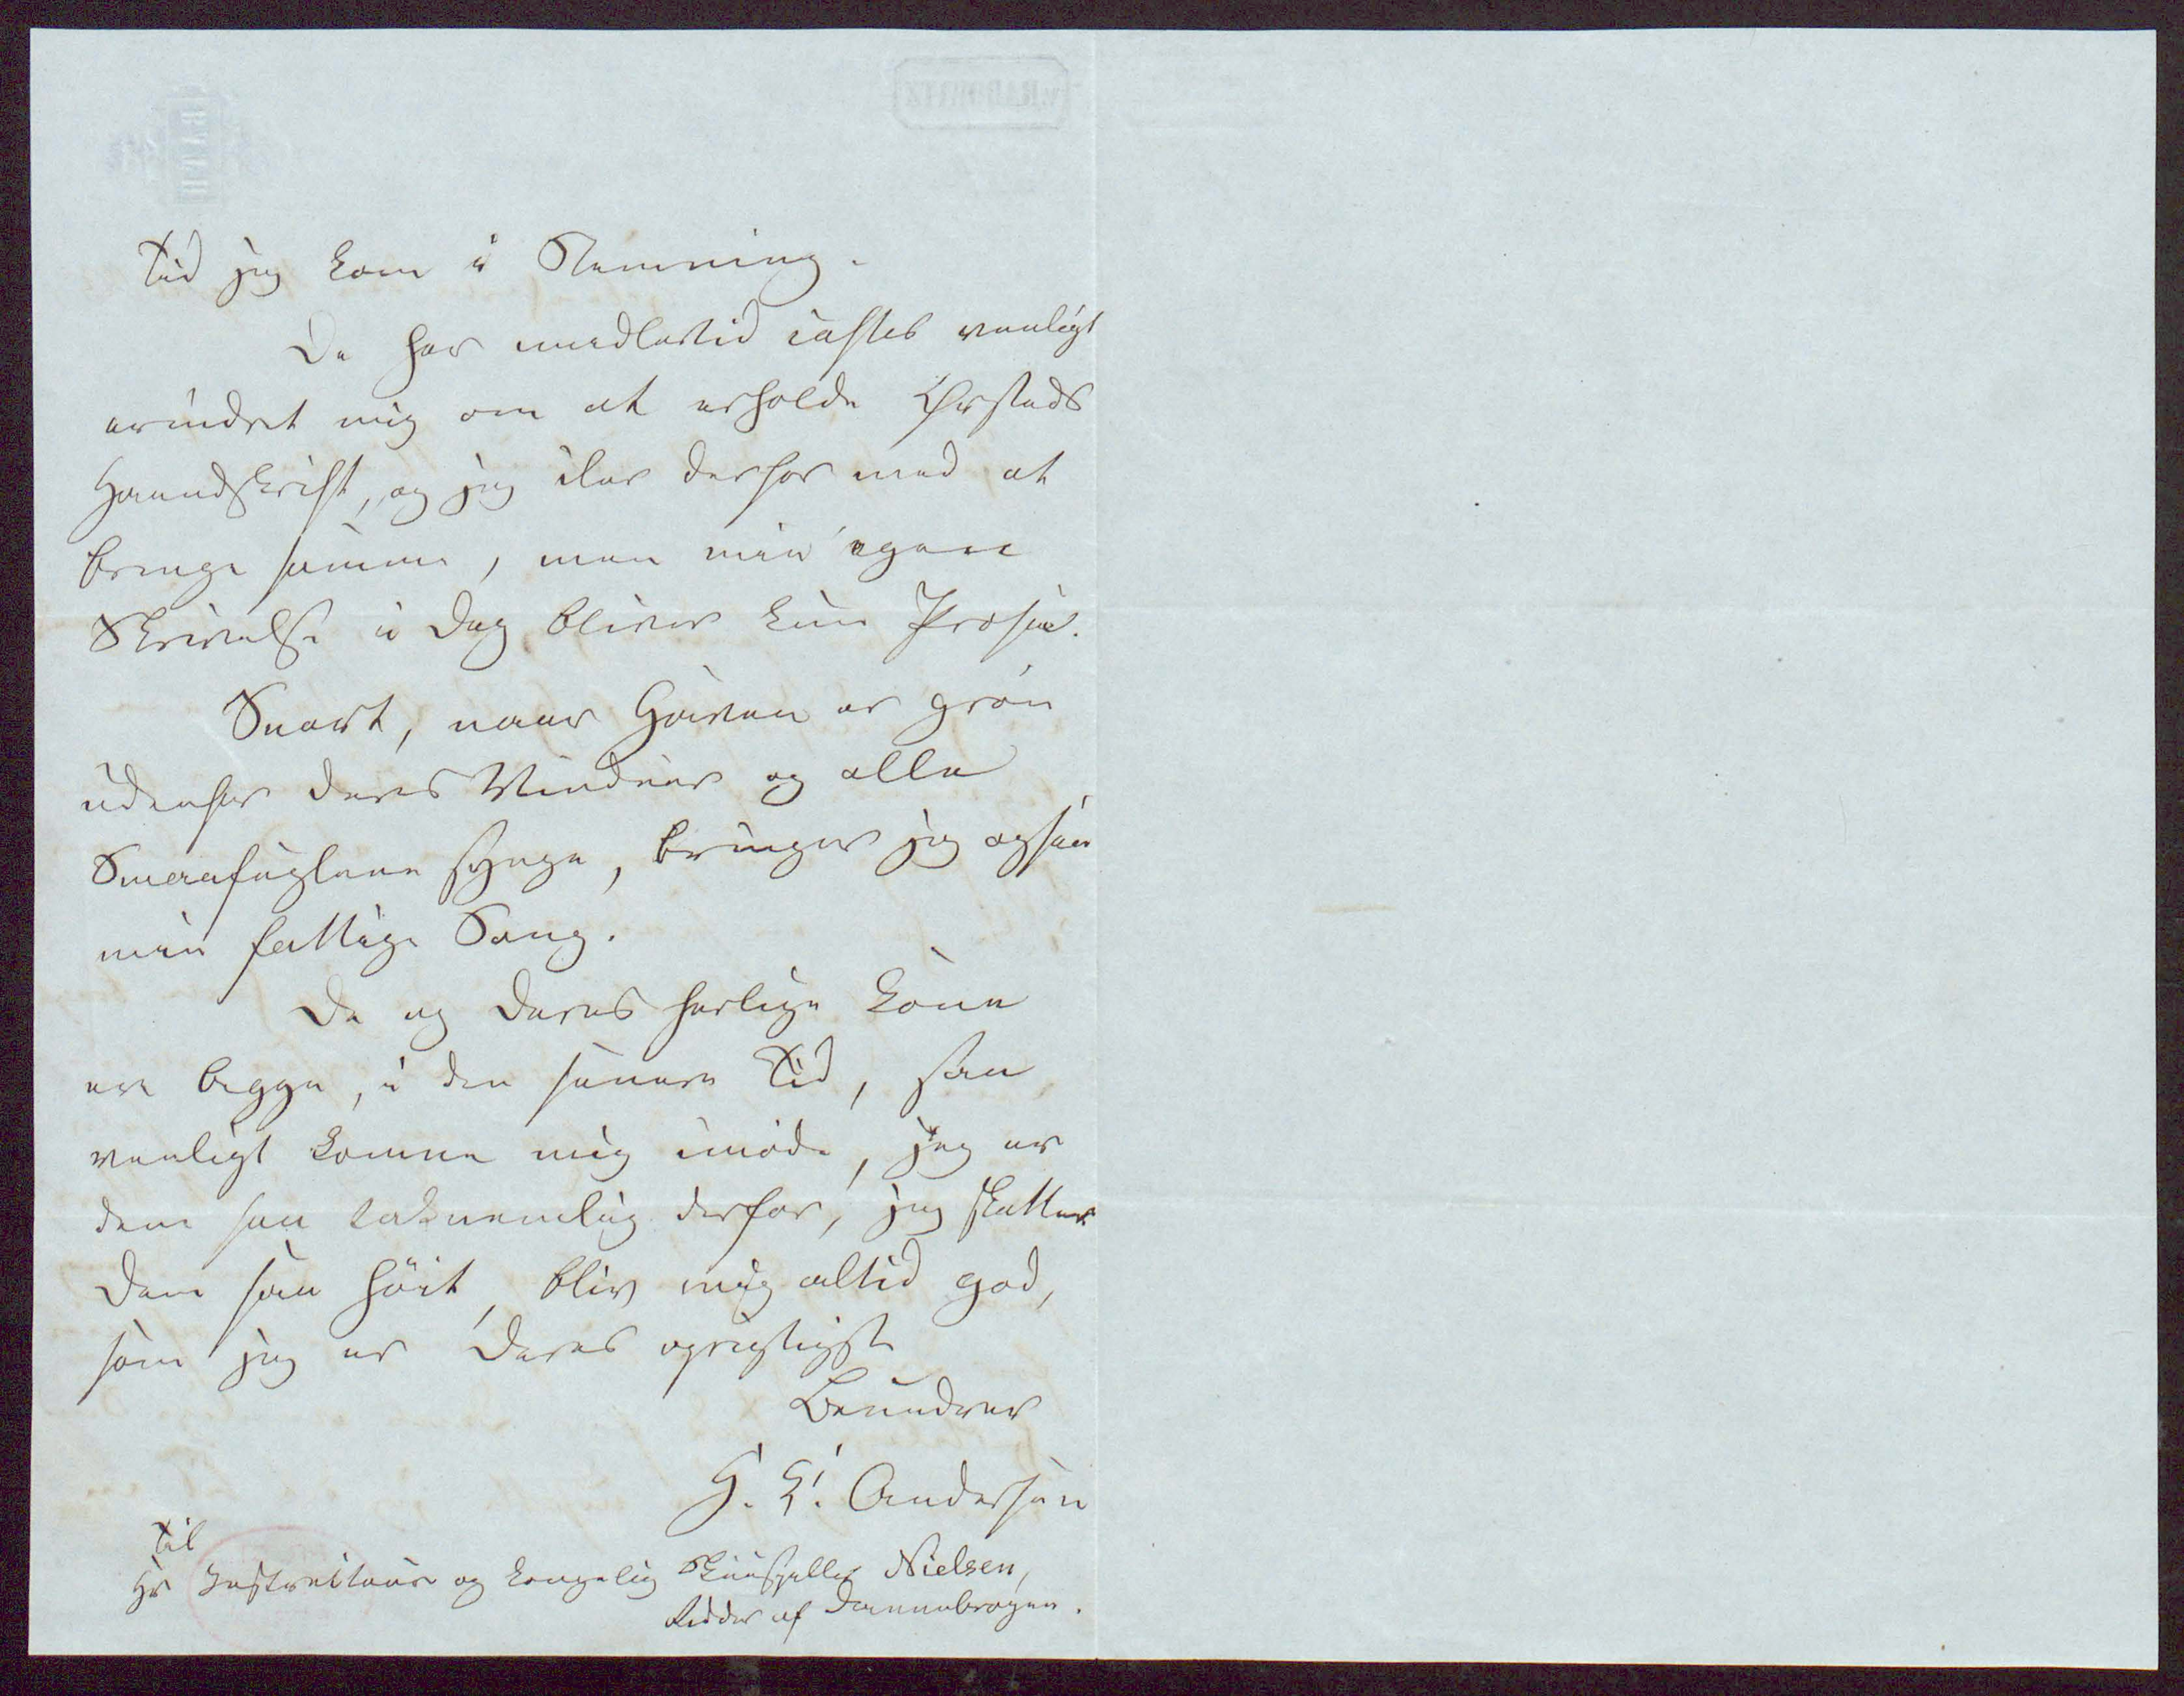 Tid jeg kom i Stemning.
De har imidlertid idethele venligt
erindret mig om at erholde Ørsteds
Haandskrift, og jeg iler derfor med at
bringe samme, men min egen
Skrivelse i Dag bliver kun Prosa.
Snart, naar Haven er grøn
udenfor Deres Vinduer og alle
Smaafuglene synge, bringer jeg ogsaa
min fattige Sang.
De og Deres herlige Kone
ere begge, i den senere Tid, saa
venligt komne mig imøde, jeg er
dem saa taknemlig derfor, jeg skatter
Dem saa høit, bliv mig altid god,
som jeg er Deres oprigtigste
Beundrer
H. C. Andersen
Til
Hr Instructeur og kongelig Skuespiller Nielsen,
Ridder af Dannebrogen.